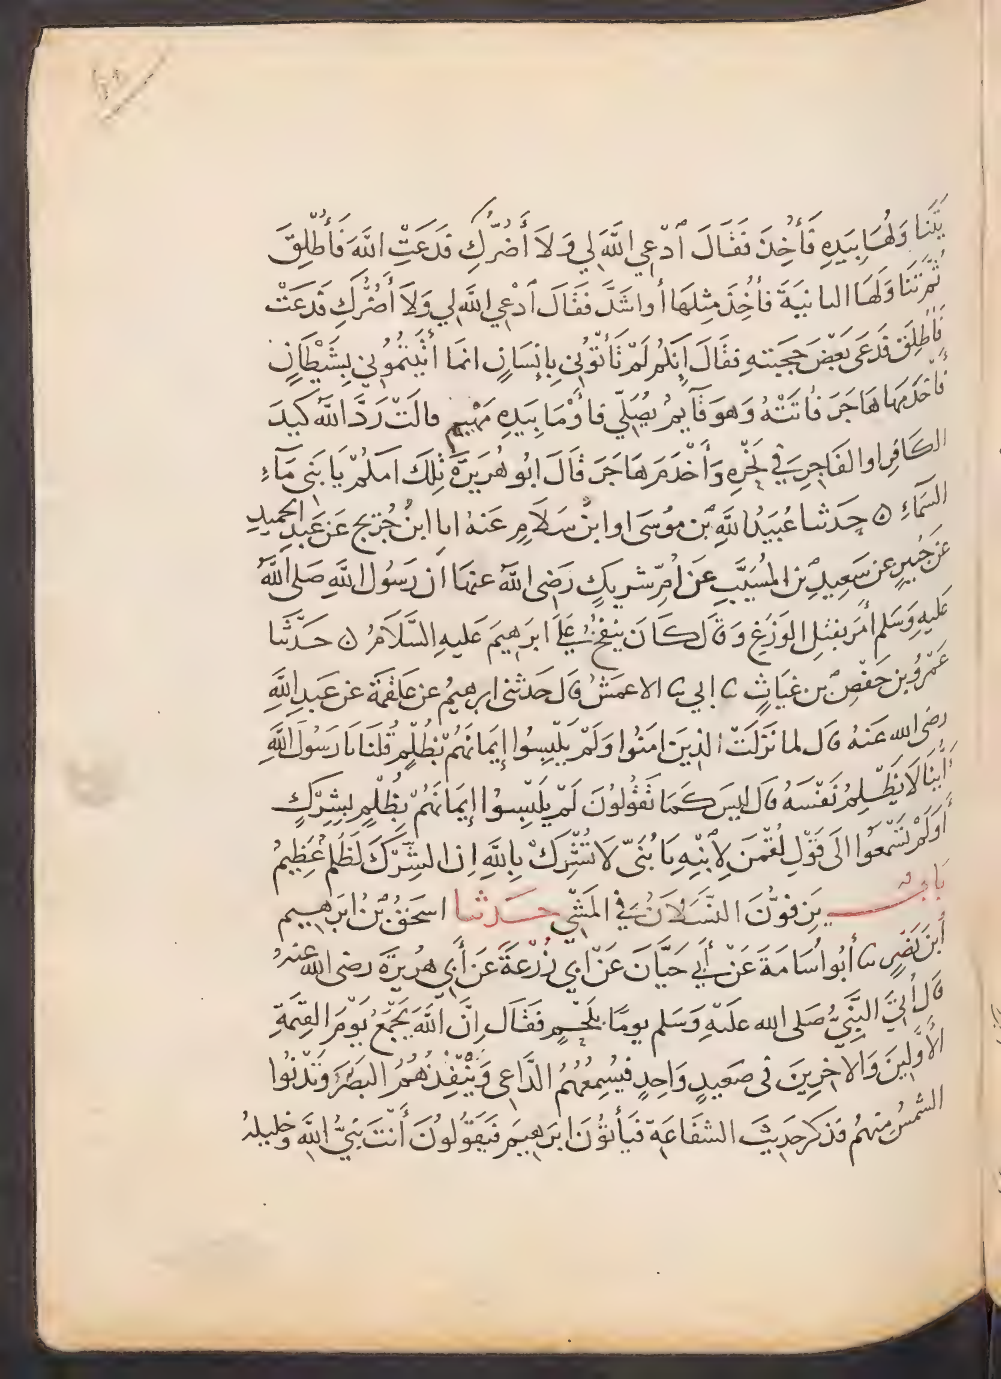 يَتَنَاوَلُهَا بِيَدِهِ فَأُخِذَ فَقَالَ ٱدْعِي اللَّهَ لِي وَلَا أَضُرُّكِ فَدَعَتِ اللَّهَ فَأُطْلِقَ
ثُمَّ تَنَاوَلَهَا الثانيَةَ فَأُخِذَ مِثلَهَا أو اشَدَّ فَقَالَ ٱدْعِي اللَّهَ لِي وَلَا أَضُرُّكِ فَدَعَتْ
فَأُطْلِقَ فَدَعَى بَعْضَ حَجَبَتِهِ فقَالَ إِنكُمْ لَمْ تَأْتُوْنِي بِإِنْسَانٍ انمَا أَتَيْتمُوْنِي بِشَيْطَانٍ
فَأَخْدَمَهَا هَاجَرَ فَأَتَتْهُ وَهوَ قَآيِمٌ يُصَلِّي فَأَوْمَا بِيَدِهِ مَهْيَم قالَتْ رَدَّ اللَّهُ كيدَ
الكَافِرِ او الفَاجِرِ فِي نَحْرِهِ وَأَخْدَمَ هَاجَرَ قَالَ ابُو هُرَيرَةَ تِلكَ امكُمْ يَا بَنِي مَآءِ
السَمَآءِ ۝ حَدثنا عُبَيدُ اللَّهِ بن موُسَى او ابنُ سَلَامٍ عَنهُ انا ابنُ جُرَيجٍ عَن عَبدِ الحَمِيدِ
بْنِ جُبَيرٍ عن سَعِيدِ بنِ المُسَيَّبِ عَن أُمِّ شريكٍ رَضِيَ اللَّهُ عنهَا ان رَسُولَ اللَّهِ صَلى اللَّهُ
عَليهِ وَسَلم أَمَر بقتلِ الوَزَغِ وَقَال كَانَ يَنفُخُ عَلَى ابرَهِيمَ عَليهِ السَّلَامُ ۝ حَدَّثنا
عُمَرُ بن حَفْصِ بن غيَاثٍ ثنا ابي ثنا الاعمَشُ قال حَدثني ابرهِيمُ عن عَلقَمَة عن عَبدِ اللَّهِ
رضي الله عَنهُ قال لما نَزَلَتْ الذِينَ امَنُوا وَلَمْ يَلْبِسُوا إِيمَانَهُمْ بظُلْمٍ قُلنَا يَا رَسُولَ اللَّهِ
أَيُّنَا لَا يَظْلِمُ نَفْسَهُ قال ليسَ كَمَا تَقُولُونَ لَمْ يَلْبِسوُا إِيمَانَهُمْ بِظُلْمٍ بِشِرْكٍ
أَوَلَمْ تَسْمَعُوا الَى قَوْلِ لُقْمَنَ لِابْنِهِ يَا بُنَيَّ لَا تُشْرِكْ بِاللَّهِ ان الشِّرْكَ لَظُلْمٌ عَظِيمٌ
بَابٌ يَزِفوُّنَ النَّسَلَانُ فِي المَشْيِ حَدثنا اسحَقُ بْنُ ابرَهِيم
ابْنِ نَصْرٍ ثنا أَبُو أُسَامَةَ عَنْ أَبِي حَيَّانَ عَنْ ابي زُرْعَةَ عَن أَبِي هُرَيْرَةَ رضى الله عنهُ
قال أُتِيَ النَّبِيُّ صَلى الله عَلَيْهِ وَسَلم يومًا بِلَحْمٍ فقَالَ اِنَّ اللَّهَ يَجْمَعُ يَوْمَ القِيمَةِ
الأَوَّلِينَ وَالاخِرِينَ فى صَعيدٍ وَاحِدٍ فيُسمِعُهُمُ الدَّاعِي وَيُنْفِذُهُمُ البَصَرُ وَتَدْنُوا
الشمسُ مِنهُم فذكرَ حَدِيثَ الشفَاعَةِ فيَأتُوْنَ ابرَهِيمَ فيَقُولُونَ أَنْتَ نَبِيُّ اللَّهِ وَخَليلهُ